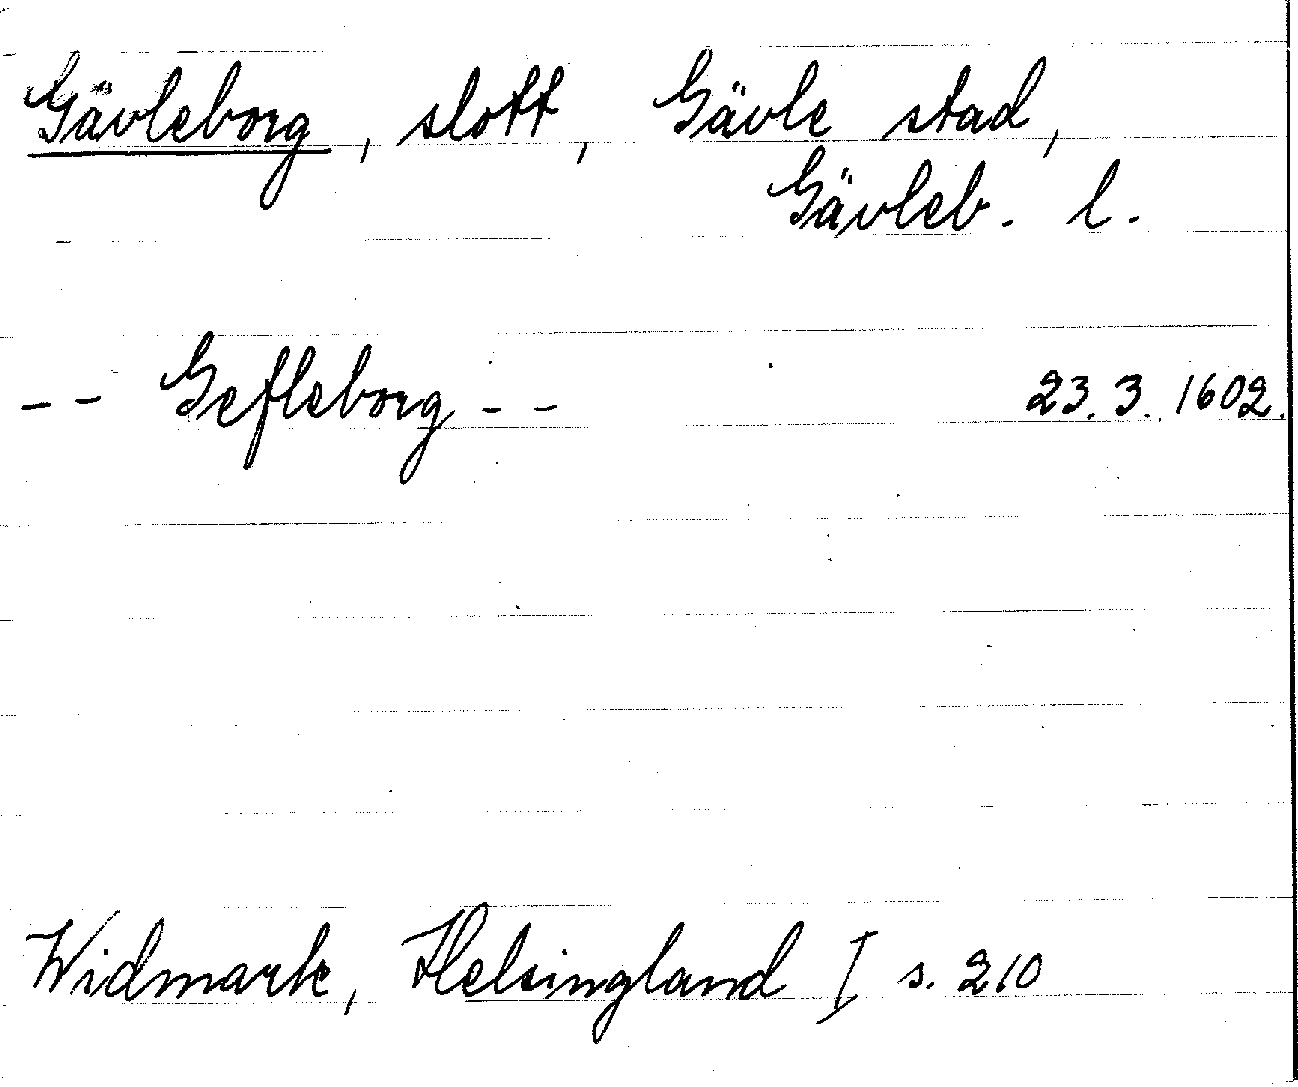 Gävleborg, slott, Gävle stad,
Gävleb. l.
-- Gefleborg -- 23.3.1602.
Widmark, Helsingland I s. 210